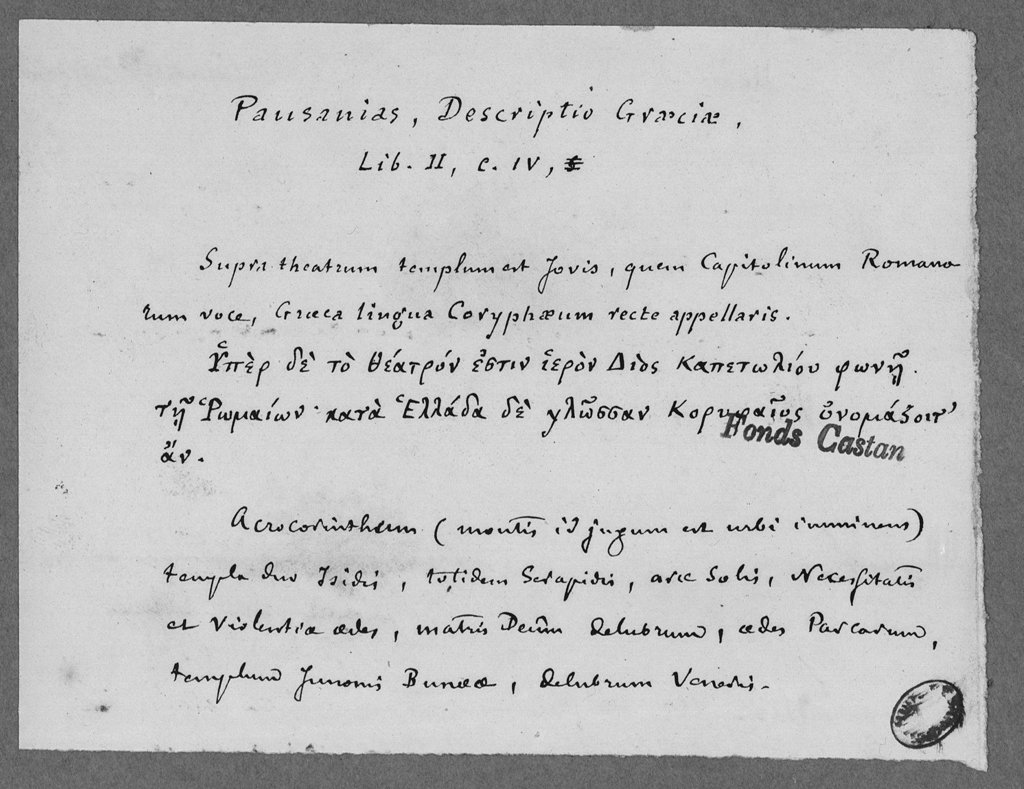 Pausanias, Descriptio Græciæ,
Lib. II, c. IV,
Supra theatrum templum est Jovis, quem Capitolinum Romano
rum voce, Græca lingua Coryphæum recte appellaris.
Ὑπὲρ δὲ τὸ θέατρόν ἐστιν ἱερὸν Διὸς Καπετωλίου φωνῇ
τῇ Ῥωμαίων· κατὰ Ἑλλάδα δὲ γλῶσσαν Κορυφαῖος ὀνομάζοιτ'
ἄν.
Fonds Castan
Acrocorinthum (montis id jugum est urbi imminens)
templa duo Isidis, totidem Serapidis, aræ Solis, Necessitatis
et Violentiæ ædes, matris Deûm delubrum, ædes Parcarum,
templum Junonis Buneæ, delubrum Veneris.